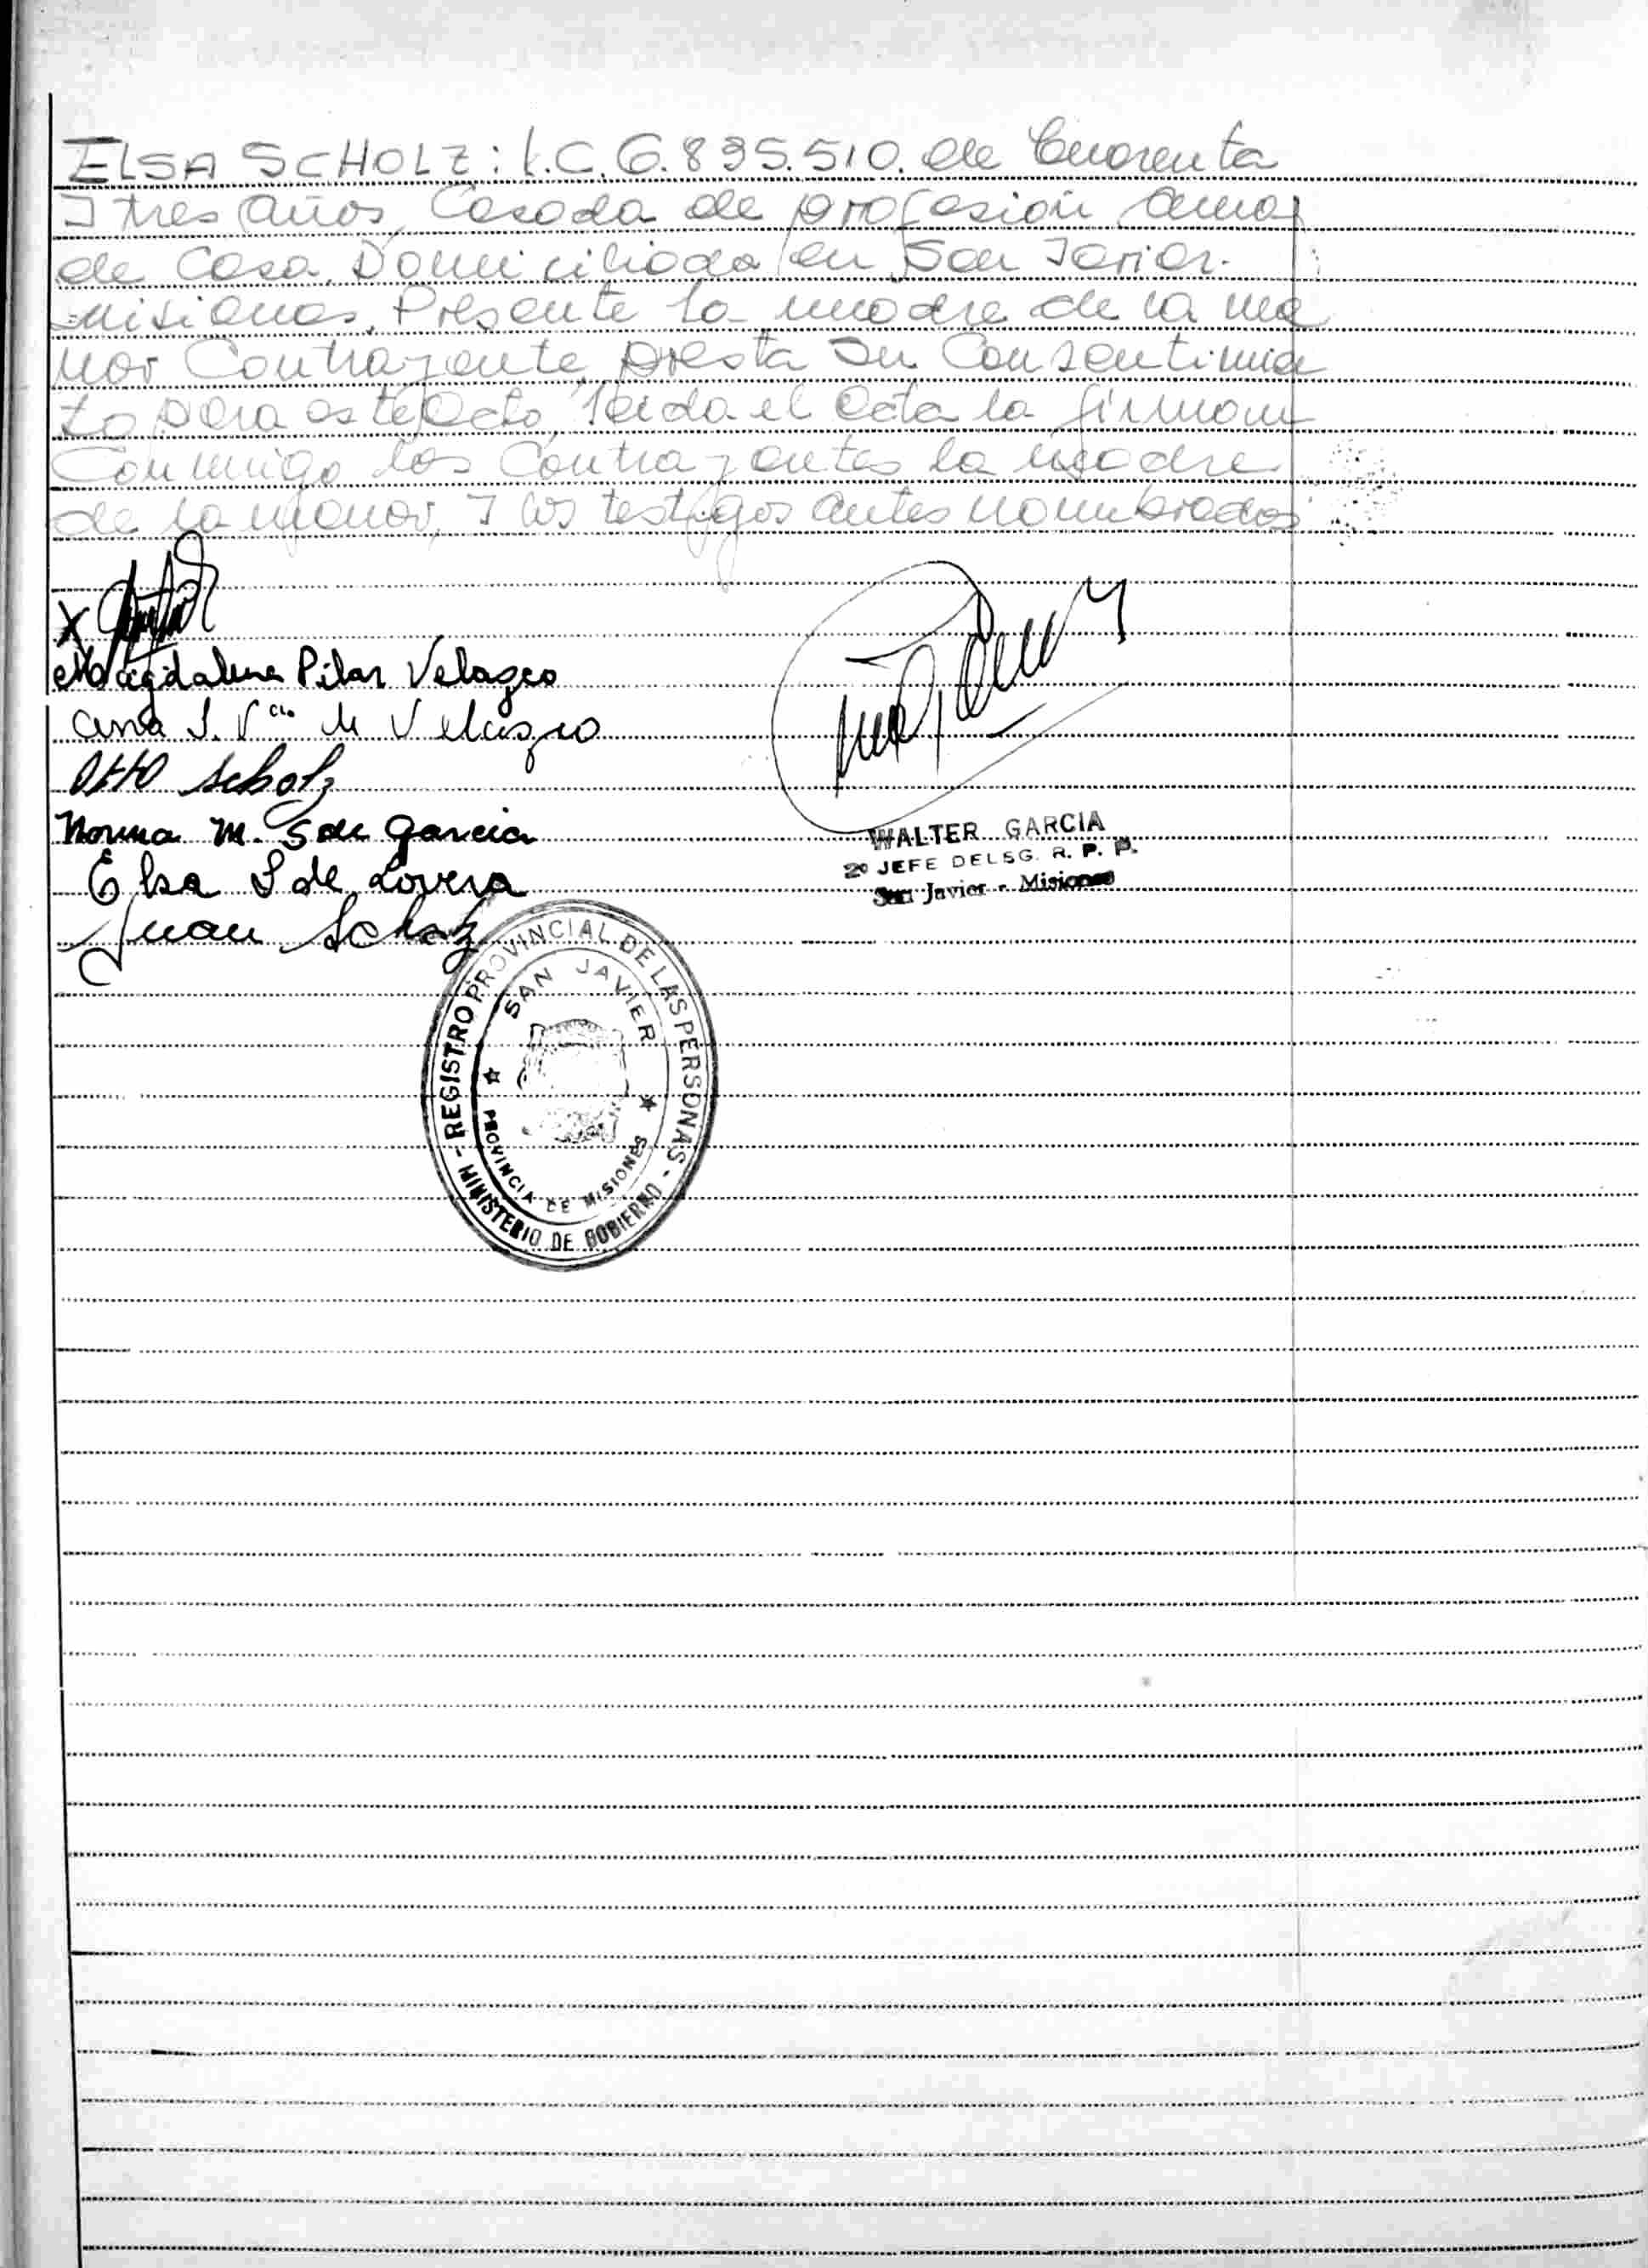 ELSA SCHOLZ: L.C. 6.835.510. de Cuarenta
Y tres años, Casada de profesión ama
de Casa, Domiciliada en San Javier.
Misiones. Presente la madre de la me
nor Contrayente, presta su Consentimie
to para este Acto, leída el Acta la firman
Conmigo los Contrayentes la madre
de la menor, Y los testigos antes nombrados
X
Magdalena Pilar Velazco
Ana S. V de Velazco
Otto Scholz
Norma M. S de Garcia
Elsa S de Lovera
Juan Scholz
WALTER GARCIA
2º JEFE DELSG. R. P. P.
San Javier - Misiones
REGISTRO PROVINCIAL DE LAS PERSONAS
- MINISTERIO DE GOBIERNO -
SAN JAVIER
PROVINCIA DE MISIONES